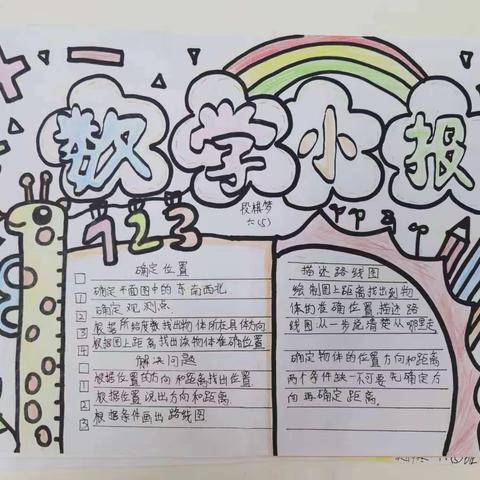 数学小报
段棋梦
六(5)
123
确定位置
1 确定平面图中的东南西北
2 确定观测点.
3 根据所给度数找出物体所在具体方向
4 根据图上距离找出该物体准确位置
解决问题
1 根据位置的方向和距离找出位置.
2 根据位置说出方向和距离.
3 根据条件画出路线图.
描述路线图
绘制图上距离找出到物
体的准确位置.描述路
线图从一步说清楚从哪里走
确定物体的位置方向和距离
两个条件缺一不可要先确定方
向再确定距离.